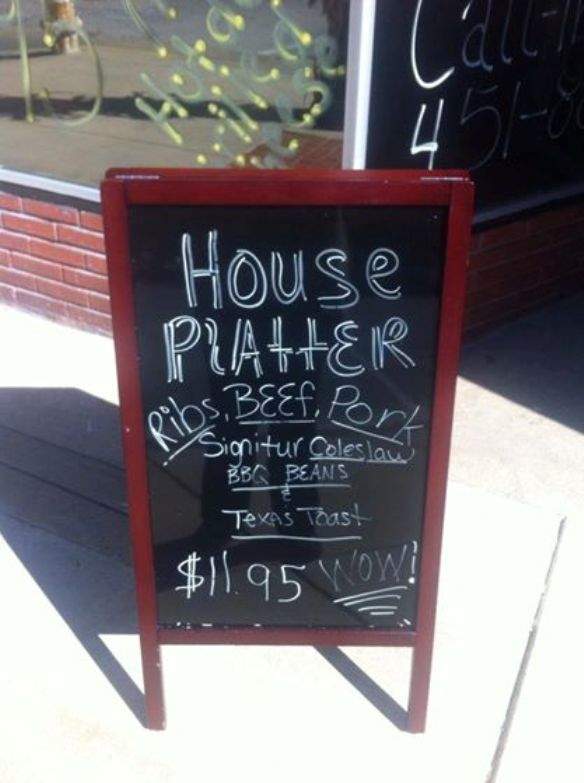 Call-
451-8
HOUSe
PlAttER
Ribs, BEEf, Pork
Signitur Coleslaw
BBQ BEANS
&
TEXAS Toast
$11.95 WOW!